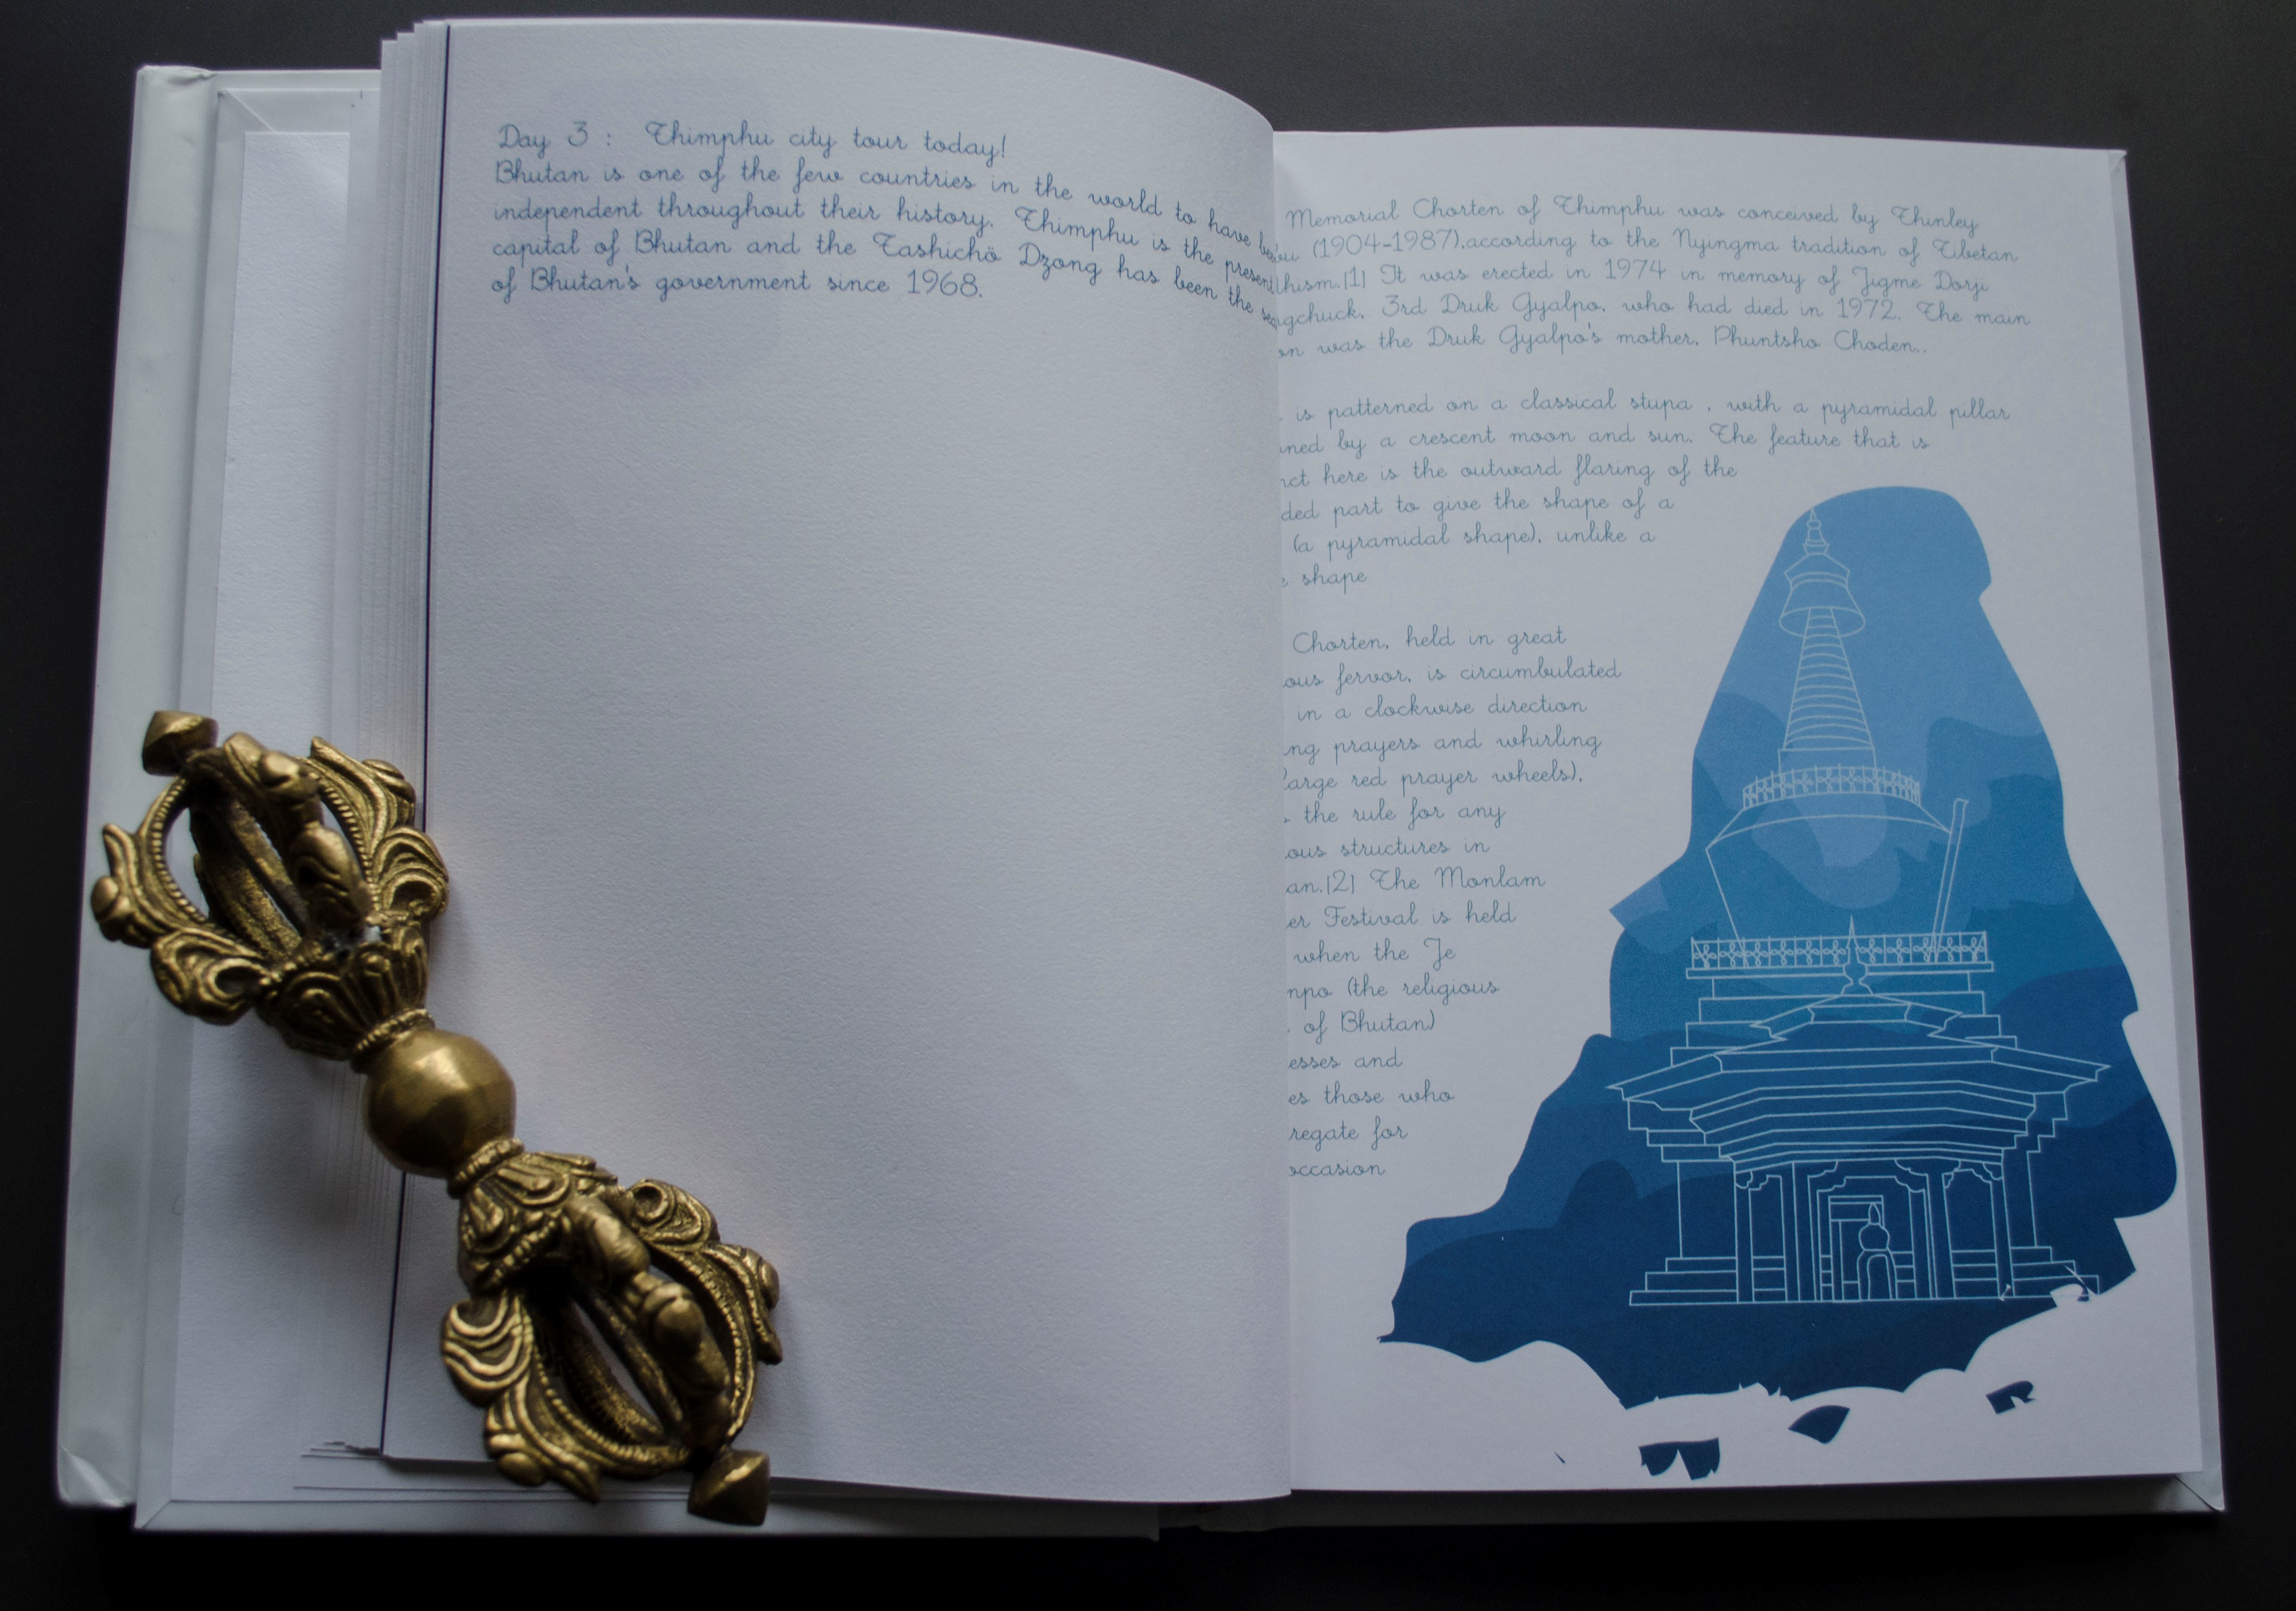 Day 3 : Thimphu city tour today!
Bhutan is one of the few countries in the world to have
independent throughout their history. Thimphu is the present
capital of Bhutan and the Tashichö Dzong has been the
of Bhutan's government since 1968.
Memorial Chorten of Thimphu was conceived by Thinley
(1904-1987),according to the Nyingma tradition of Tibetan
[1] It was erected in 1974 in memory of Jigme Dorji
3rd Druk Gyalpo, who had died in 1972. The main
was the Druk Gyalpo's mother, Phuntsho Choden..
is patterned on a classical stupa , with a pyramidal pillar
by a crescent moon and sun. The feature that is
here is the outward flaring of the
part to give the shape of a
(a pyramidal shape), unlike a
shape
Chorten, held in great
fervor, is circumbulated
in a clockwise direction
prayers and whirling
large red prayer wheels).
the rule for any
structures in
[2] The Monlam
Festival is held
when the Je
(the religious
of Bhutan)
and
those who
for
occasion